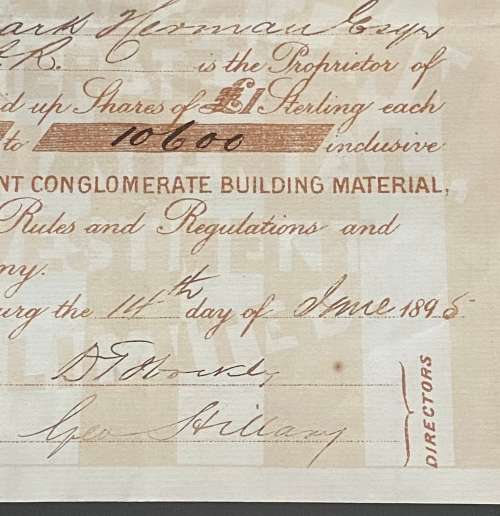 Herman Esqr
is the Proprietor of
d up Shares of £1 Sterling each
to 10600 inclusive
NT CONGLOMERATE BUILDING MATERIAL,
Rules and Regulations and
ny.
urg the 14th day of June 1895
Geo Hillary
DIRECTORS